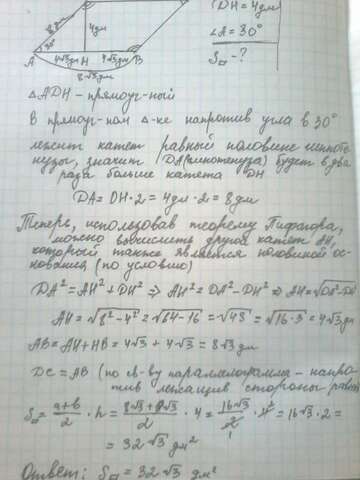 DH = 4дм
8дм
4дм
∠A = 30°
30°
A 4√3дм H 4√3дм B
8√3 дм
S▱ - ?
△ADH - прямоуг-ный
В прямоуг-ном △-ке напротив угла в 30°
лежит катет равный половине гипоте-
нузы, значит DA(гипотенуза) будет в два
раза больше катета DH
DA = DH · 2 = 4дм · 2 = 8дм
Теперь, использовав теорему Пифагора,
можно вычислить другой катет AH,
который также является половиной ос-
нования (по условию)
DA² = AH² + DH² ⇒ AH² = DA² - DH² ⇒ AH = √DA² - DH²
AH = √8² - 4² = √64 - 16 = √48 = √16 · 3 = 4√3 дм
AB = AH + HB = 4√3 + 4√3 = 8√3 дм
DC = AB (по св-ву параллелограмма - напро-
тив лежащие стороны равны
S▱ = a+b/2 · h = 8√3 + 8√3/2 · 4 = 16√3/2 · 4 = 16√3 · 2 =
= 32√3 дм²
Ответ: S▱ = 32√3 дм²